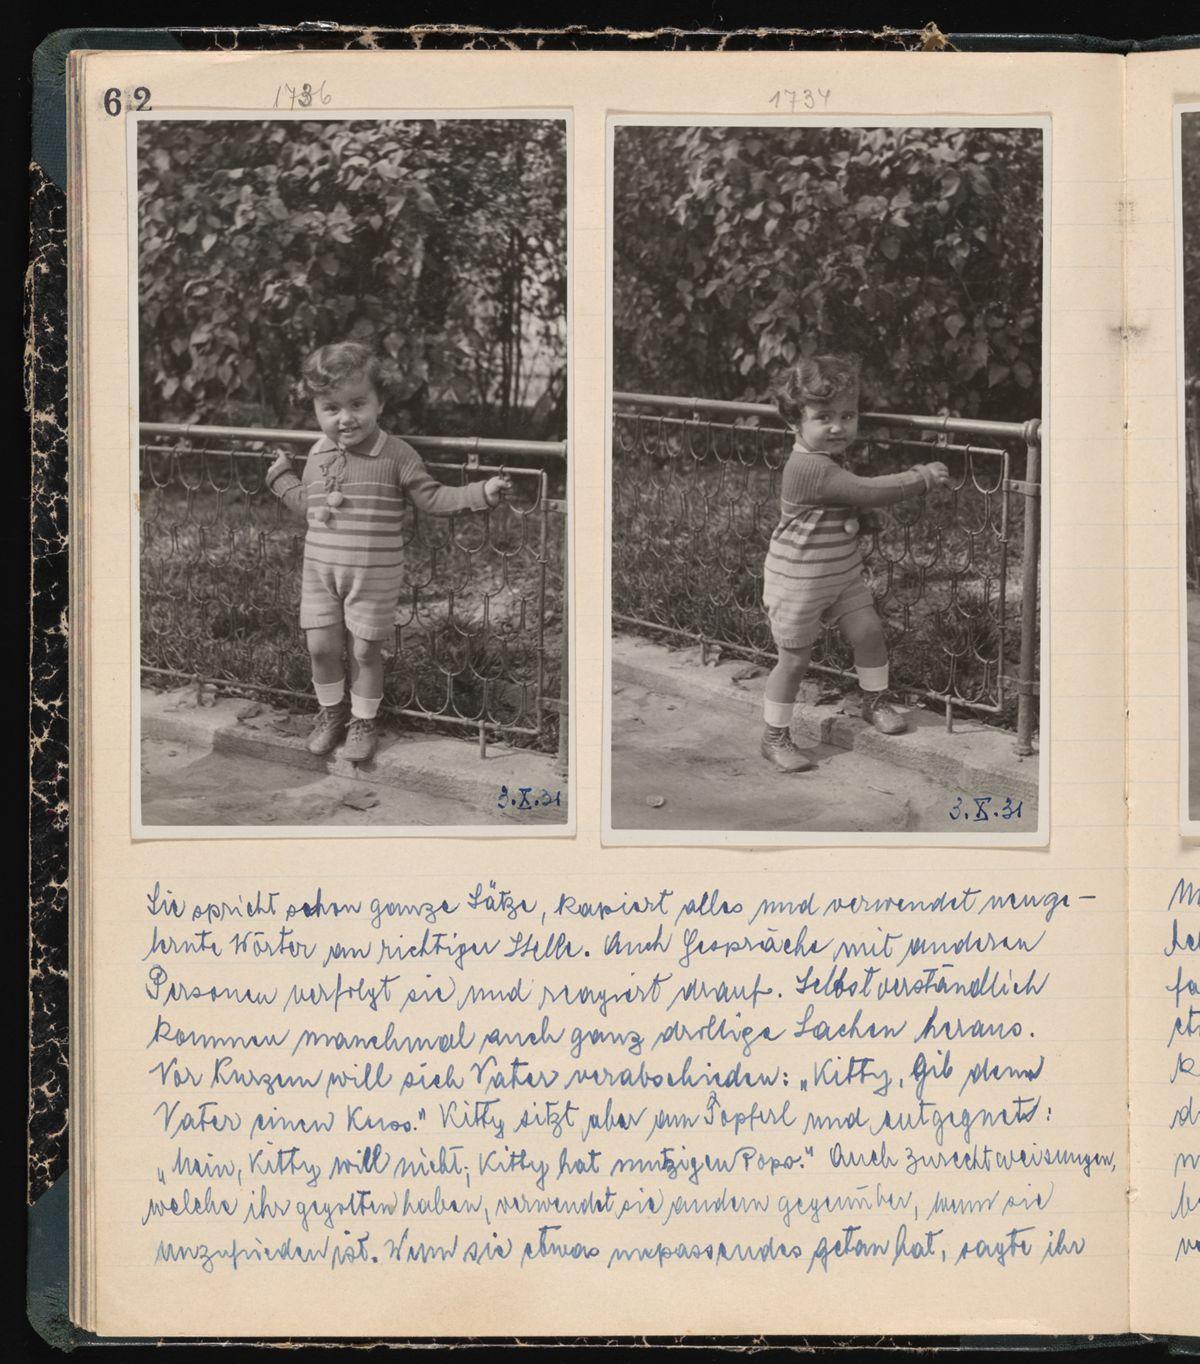 62
1736
1734
3.X.31
3.X.31
Sie spricht schon ganze Sätze, kapiert alles und verwendet neuge-
lernte Wörter an richtiger Stelle. Auch Gespräche mit anderen
Personen verfolgt sie und reagiert drauf. Selbstverständlich
kommen manchmal auch ganz drollige Sachen heraus.
Vor Kurzem will sich Vater verabschieden: „Kitty, Gib dem
Vater einen Kuss." Kitty sitzt aber am Topferl und entgegnet:
„Nein, Kitty will nicht; Kitty hat mutzigen Popo." Auch Zurechtweisungen,
welche ihr gegolten haben, verwendet sie andern gegenüber, wenn sie
unzufrieden ist. Wenn sie etwas unpassendes getan hat, sagte ihr